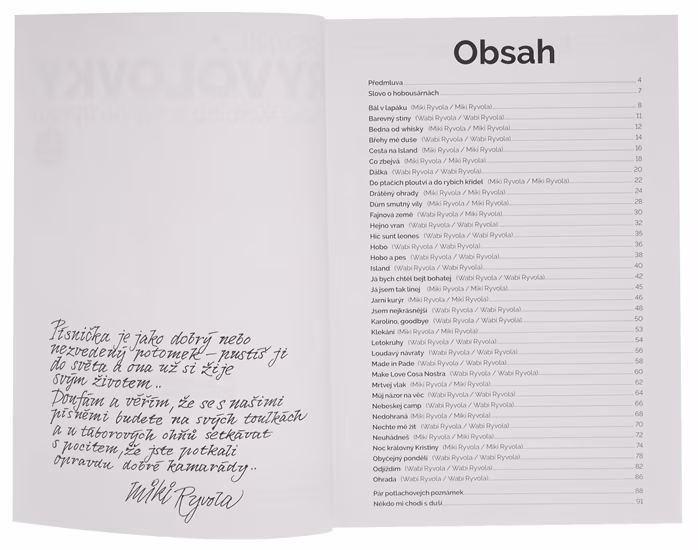 Písnička je jako dobrý nebo
nezvedený potomek – pustíš ji
do světa a ona už si žije
svým životem..
Doufám a věřím, že se s našimi
písněmi budete na svých toulkách
a u táborových ohňů setkávat
s pocitem, že jste potkali
opravdu dobré kamarády..
Miki Ryvola
Obsah
Předmluva 4
Slovo o hobousárnách 7
Bál v lapáku (Miki Ryvola / Miki Ryvola) 8
Barevný stíny (Wabi Ryvola / Wabi Ryvola) 11
Bedna od whisky (Miki Ryvola / Miki Ryvola) 12
Břehy mé duše (Wabi Ryvola / Wabi Ryvola) 14
Cesta na Island (Miki Ryvola / Miki Ryvola) 16
Co zbejvá (Miki Ryvola / Miki Ryvola) 18
Dálka (Wabi Ryvola / Wabi Ryvola) 20
Do ptačích ploutví a do rybích křídel (Miki Ryvola / Miki Ryvola) 22
Drátěný ohrady (Miki Ryvola / Miki Ryvola) 24
Dům smutný víly (Miki Ryvola / Miki Ryvola) 28
Fajnová země (Wabi Ryvola / Wabi Ryvola) 30
Hejno vran (Wabi Ryvola / Wabi Ryvola) 32
Hic sunt leones (Wabi Ryvola / Wabi Ryvola) 35
Hobo (Wabi Ryvola / Wabi Ryvola) 36
Hobo a pes (Wabi Ryvola / Miki Ryvola) 38
Island (Wabi Ryvola / Wabi Ryvola) 40
Já bych chtěl bejt bohatej (Wabi Ryvola / Wabi Ryvola) 42
Já jsem tak línej (Miki Ryvola / Miki Ryvola) 45
Jarní kurýr (Miki Ryvola / Miki Ryvola) 46
Jsem nejkrásnější (Wabi Ryvola / Wabi Ryvola) 48
Karolino, goodbye (Wabi Ryvola / Wabi Ryvola) 50
Klekání (Miki Ryvola / Miki Ryvola) 53
Letokruhy (Wabi Ryvola / Wabi Ryvola) 54
Loudavý návraty (Wabi Ryvola / Wabi Ryvola) 56
Made in Pade (Wabi Ryvola / Wabi Ryvola) 58
Make Love Cosa Nostra (Wabi Ryvola / Wabi Ryvola) 60
Mrtvej vlak (Miki Ryvola / Miki Ryvola) 62
Můj názor na věc (Wabi Ryvola / Wabi Ryvola) 64
Nebeskej camp (Wabi Ryvola / Wabi Ryvola) 66
Nedohraná (Miki Ryvola / Miki Ryvola) 68
Nechte mě žít (Wabi Ryvola / Wabi Ryvola) 70
Neuhádneš (Miki Ryvola / Miki Ryvola) 72
Noc královny Kristiny (Miki Ryvola / Miki Ryvola) 74
Obyčejný pondělí (Wabi Ryvola / Wabi Ryvola) 78
Odjíždím (Wabi Ryvola / Wabi Ryvola) 82
Ohrada (Wabi Ryvola / Miki Ryvola) 86
Pár potlachovejch poznámek 88
Někdo mi chodí s duší 91